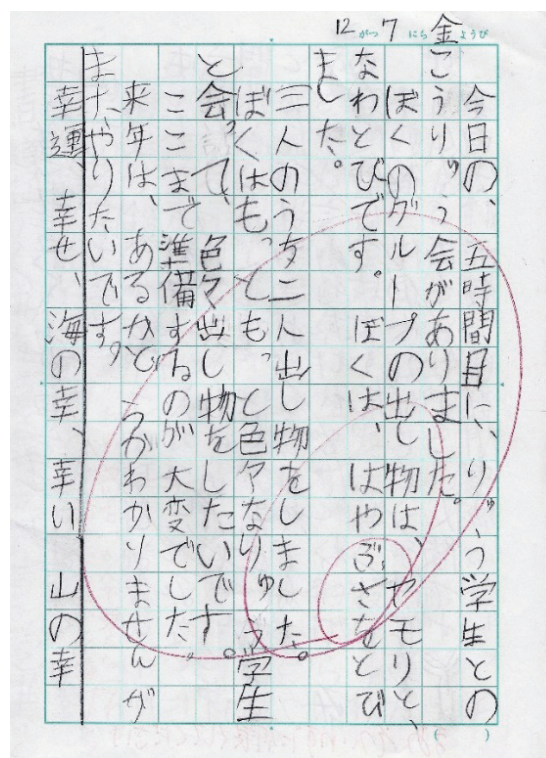 12がつ7にち金ようび
今日の、五時間目に、りゅう学生との
こうりゅう会がありました。
ぼくのグループの出し物は、ヤモリと、
なわとびです。ぼくは、はやぶさをとび
ました。
三人のうち二人出し物をしました。
ぼくはもっともっと色々なりゅう学生
と会って、色々出し物をしたいです。
ここまで準備するのが大変でした。
来年は、あるかどうかわかりませんが
またやりたいです。
幸運、幸せ、海の幸、幸い 山の幸